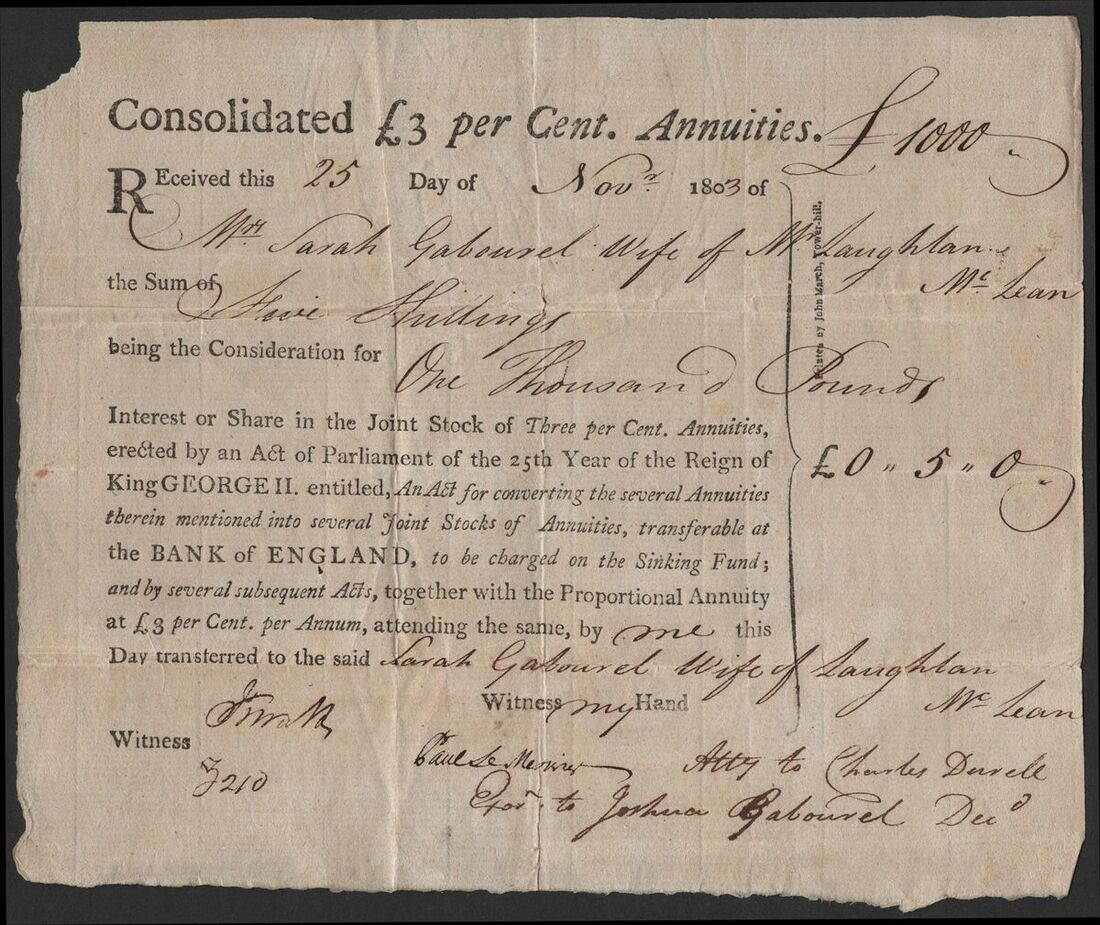 Consolidated £3 per Cent. Annuities. £ 1000
REceived this 25 Day of Novr 1803 of
Mrs Sarah Gabourel Wife of Mr Laughlan
Mc Lean
the Sum of Five Shillings
being the Consideration for One Thousand Pounds
Interest or Share in the Joint Stock of Three per Cent. Annuities,
erected by an Act of Parliament of the 25th Year of the Reign of
King GEORGE II. entitled, An Act for converting the several Annuities
therein mentioned into several Joint Stocks of Annuities, transferable at
the BANK of ENGLAND, to be charged on the Sinking Fund;
and by several subsequent Acts, together with the Proportional Annuity
at £3 per Cent. per Annum, attending the same, by me this
Day transferred to the said Sarah Gabourel Wife of Laughlan
Mc Lean
£0 " 5 " 0
Printed by John March, Tower-hill.
Witness my Hand
Witness
210
Paul Le Mesurier Atty to Charles Durell
Exor. to Joshua Gabourel Decd